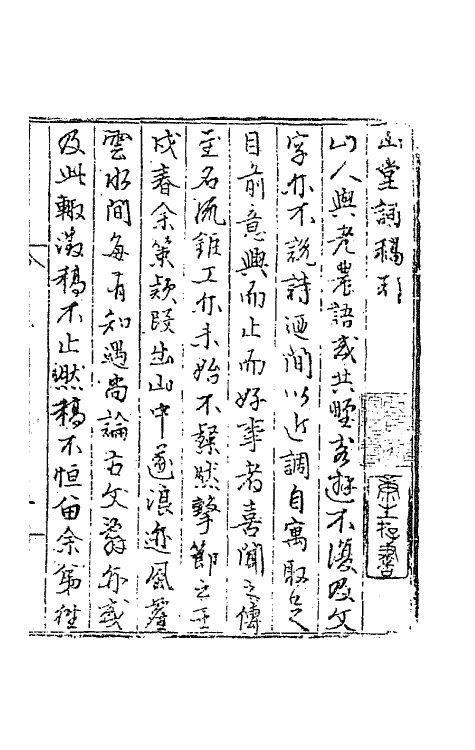 山堂詞稿引
山人與老農語或共野客遊不復及文
字亦不說詩酒間以近調自寓取足
目前意興而止而好事者喜聞之傳
至名流鉅工亦未始不粲然擊節之丙
戌春余策款段出山中遂浪迹風塵
雲水間每有知遇尚論古文辭亦或
及此輒徵稿不止然稿不恒留余第性